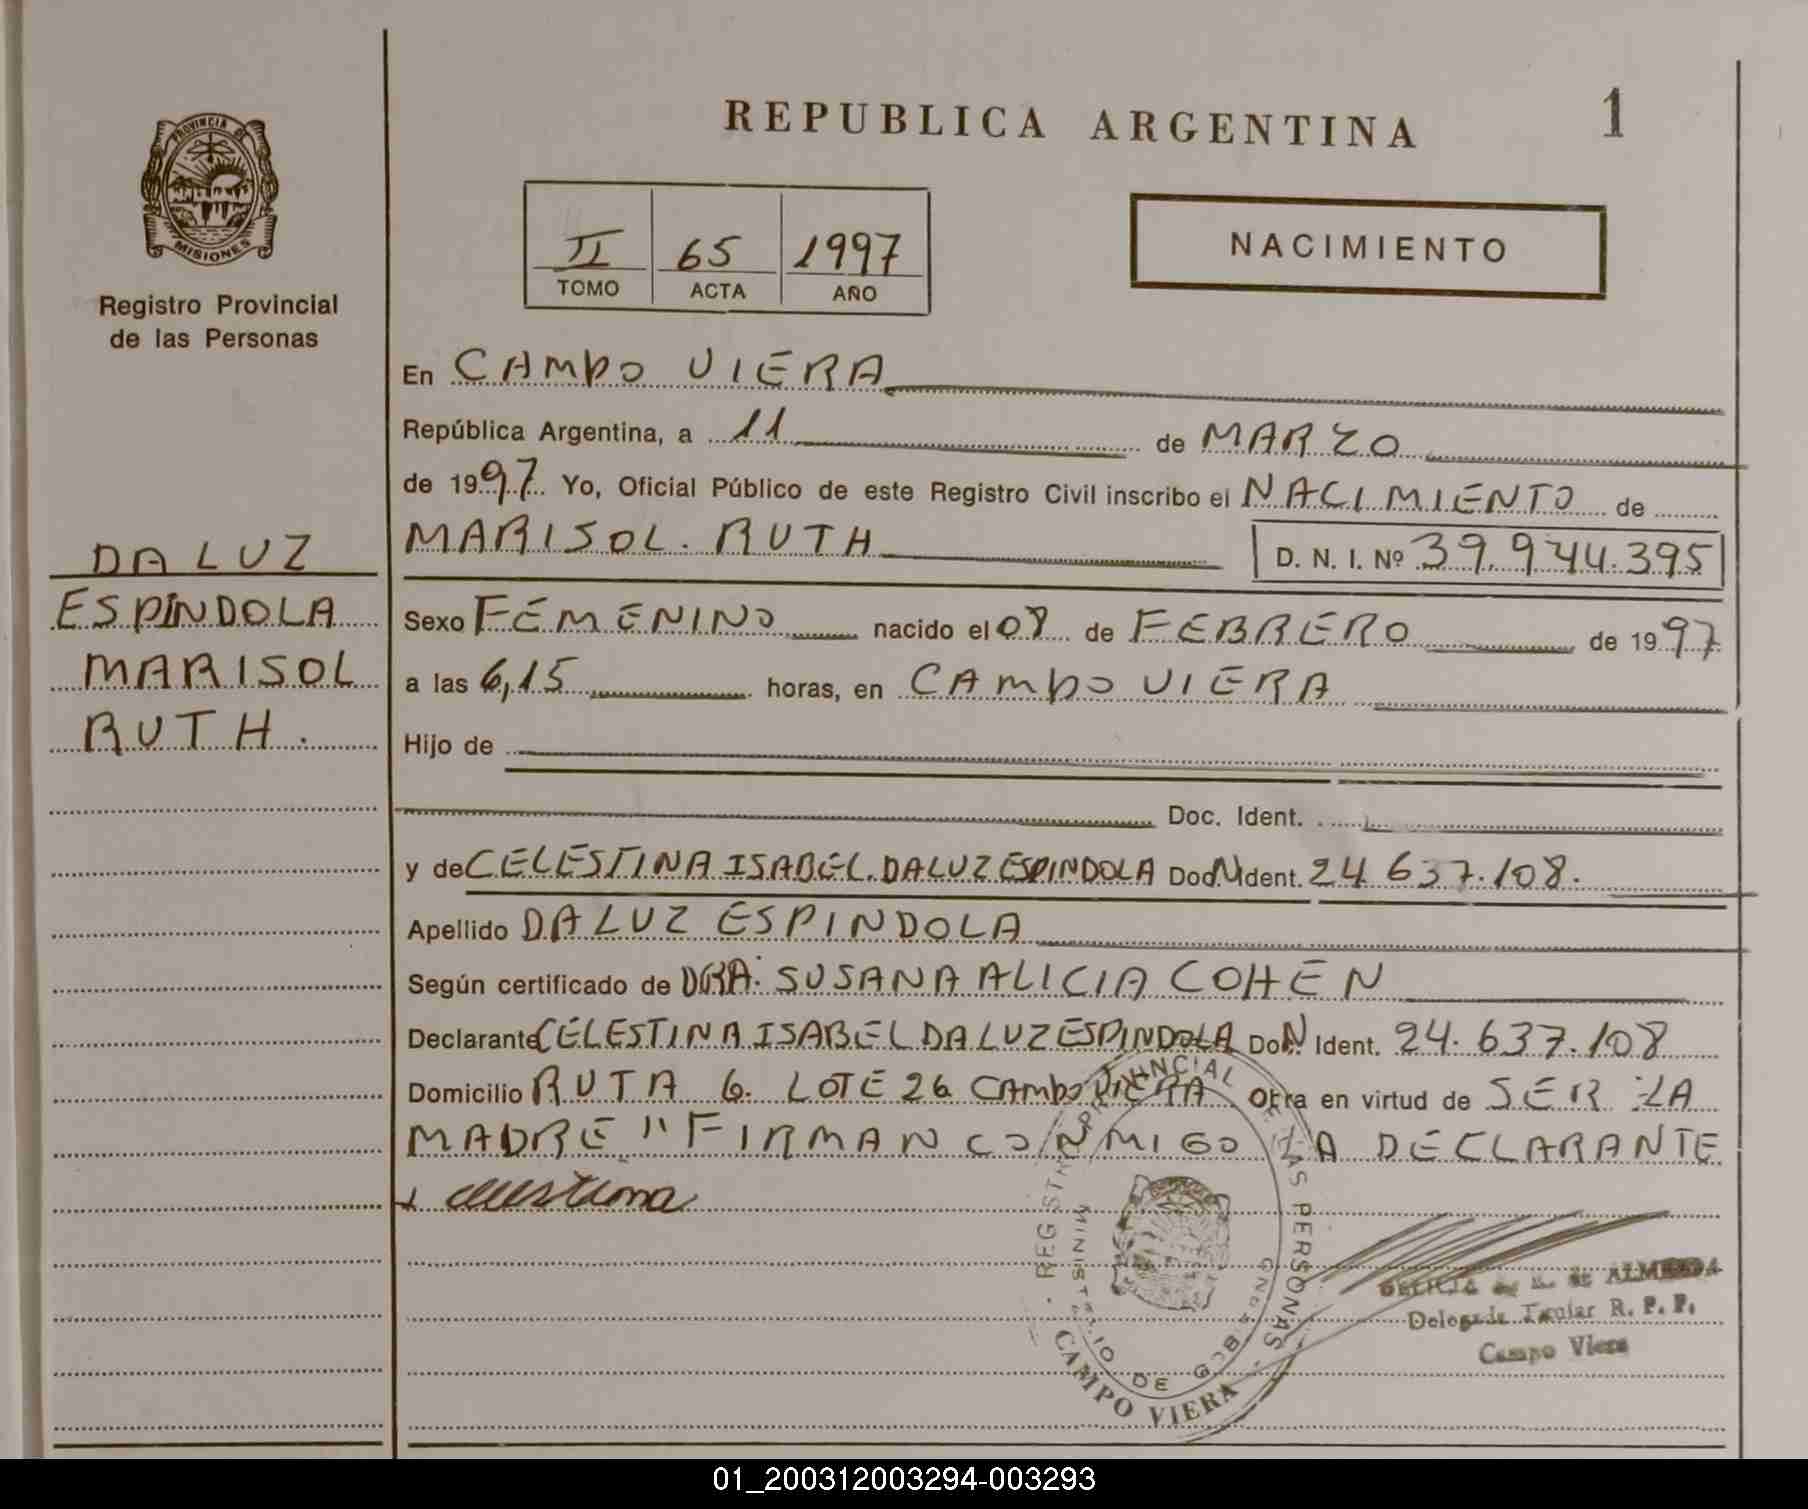 REPUBLICA ARGENTINA
1
PROVINCIA DE
MISIONES
Registro Provincial
de las Personas
II 65 1997
TOMO ACTA AÑO
NACIMIENTO
En CAMPO VIERA
República Argentina, a 11 de MARZO
de 1997 Yo, Oficial Público de este Registro Civil inscribo el NACIMIENTO de
MARISOL. RUTH D. N. I. Nº 39.944.395
DA LUZ
ESPINDOLA
MARISOL
RUTH.
Sexo FEMENINO nacido el 08 de FEBRERO de 1997
a las 6,15 horas, en CAMPO VIERA
Hijo de
Doc. Ident.
y de CELESTINA ISABEL. DA LUZ ESPINDOLA Ident. 24.637.108.
Apellido DA LUZ ESPINDOLA
Según certificado de DRA. SUSANA ALICIA COHEN
Declarante CELESTINA ISABEL DA LUZ ESPINDOLA Ident. 24.637.108
Domicilio RUTA 6. LOTE 26 CAMPO VIERA Obra en virtud de SER LA
MADRE "FIRMAN CONMIGO LA DECLARANTE
REGISTRO PROVINCIAL DE LAS PERSONAS
MINISTERIO DE
CAMPO VIERA
DE ALMEIDA
Titular R. P. P.
Campo Viera
01_200312003294-003293